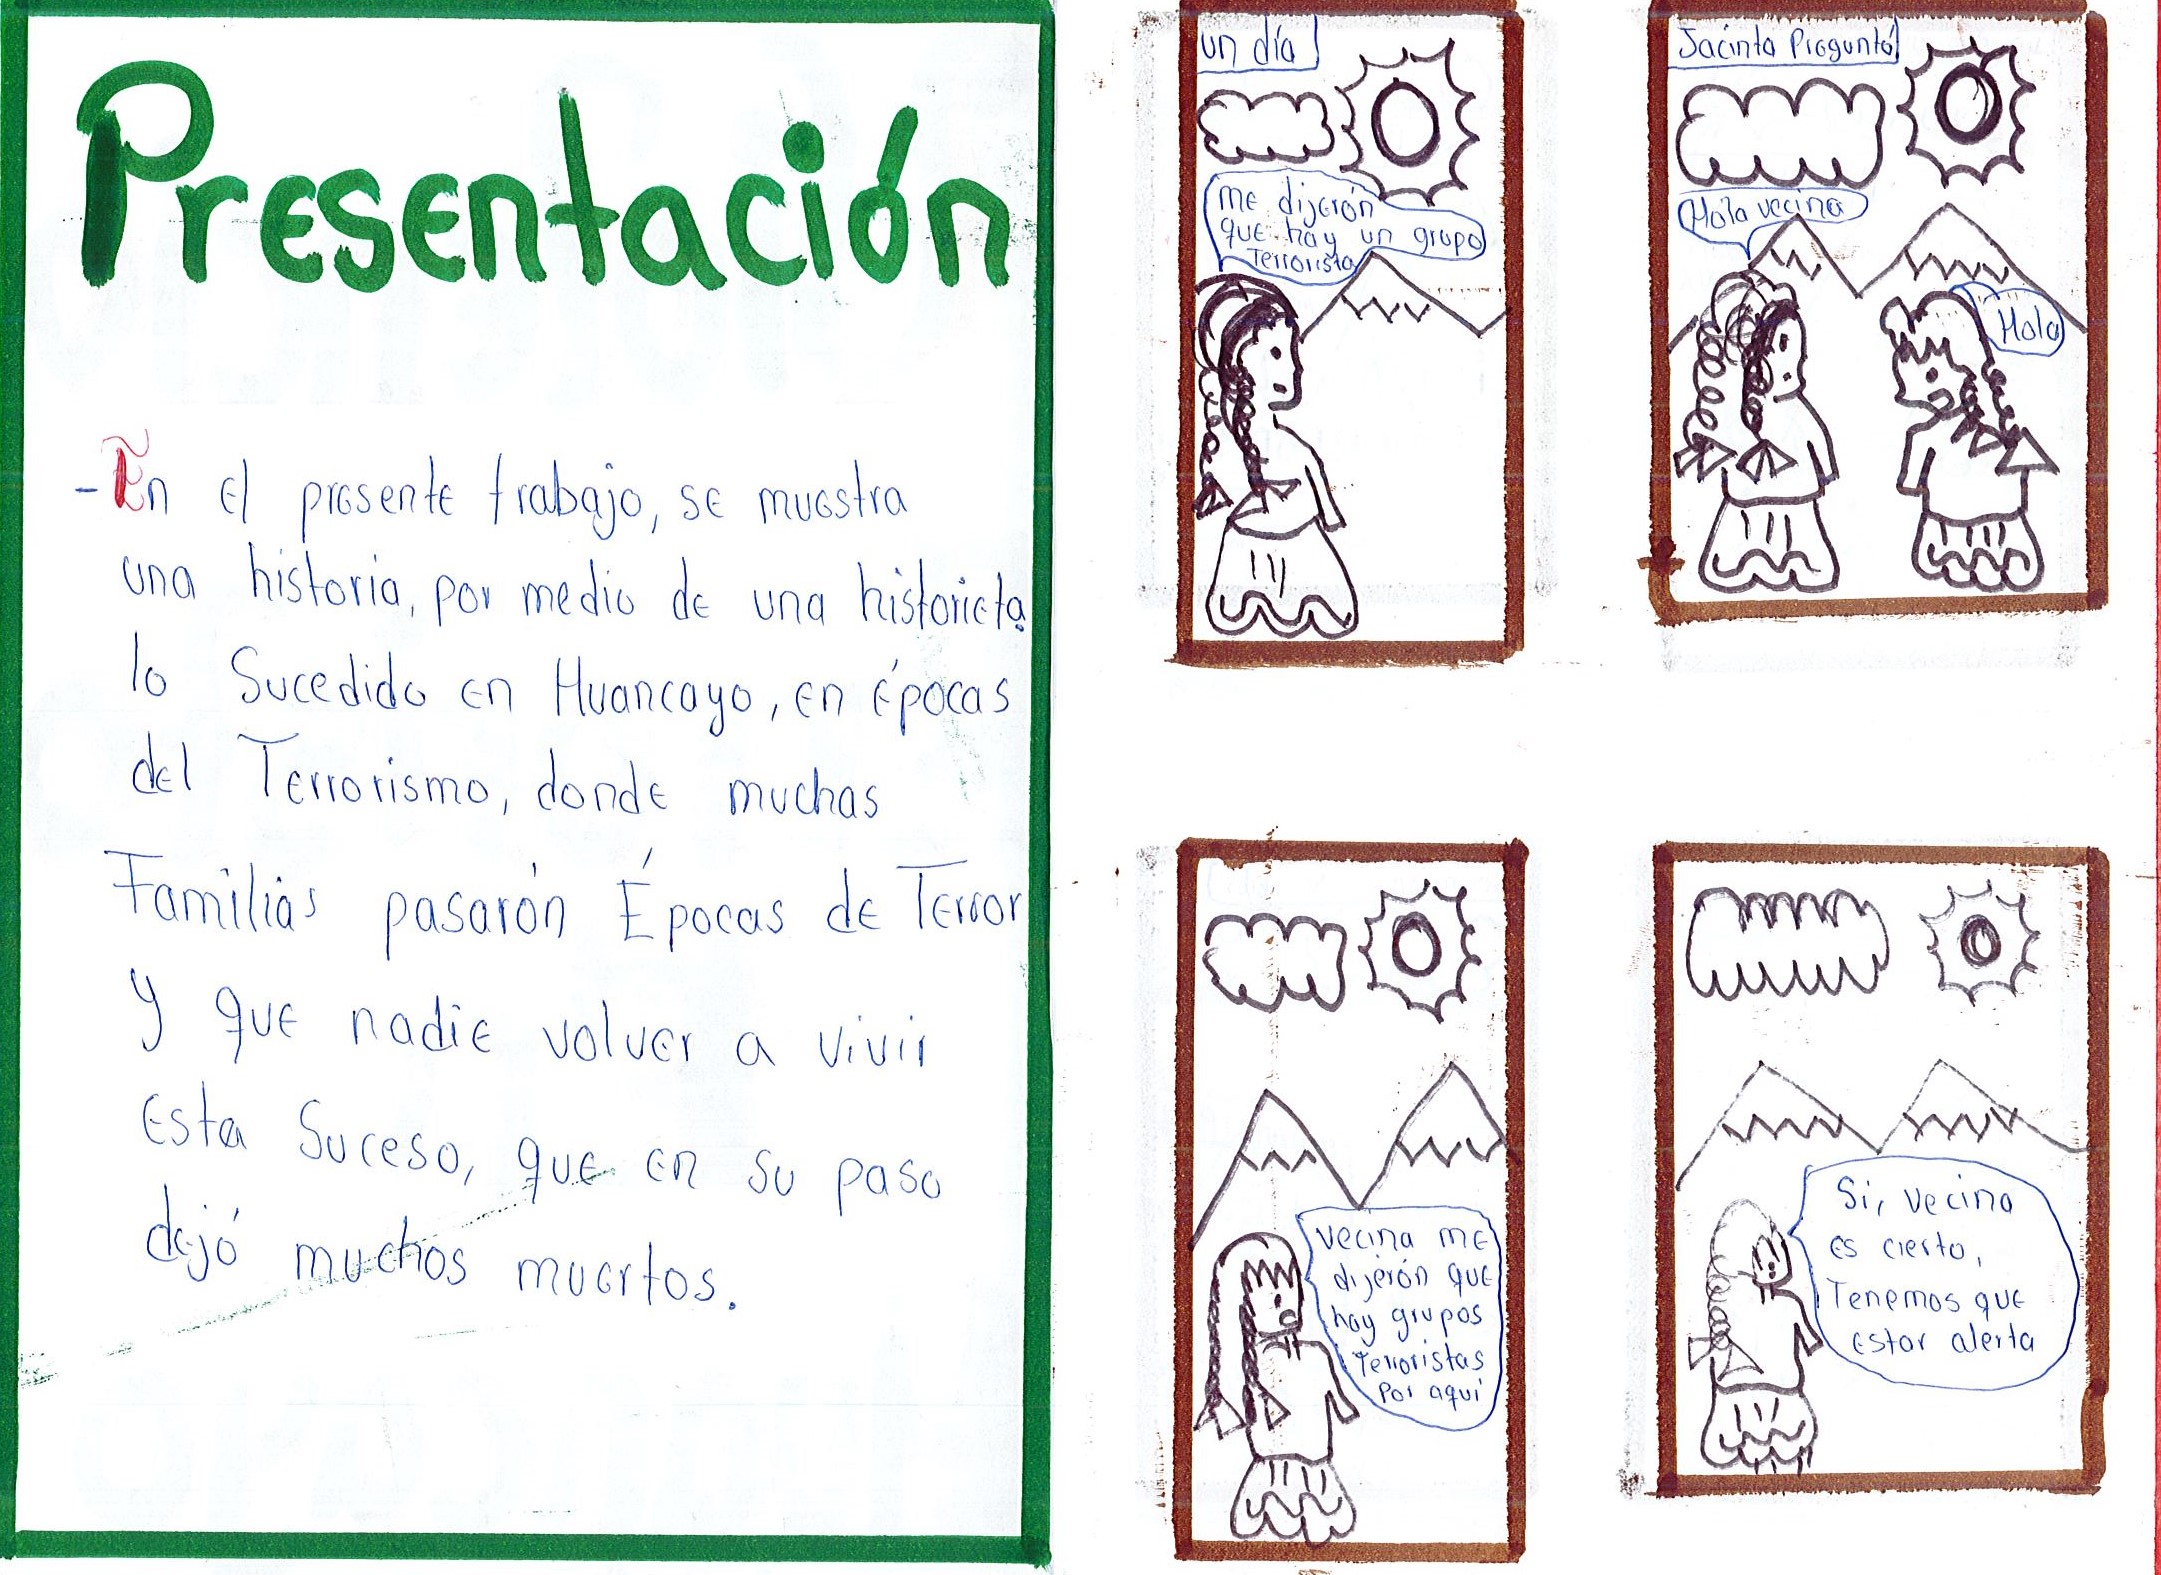 Presentación
- En el presente trabajo, se muestra
una historia, por medio de una historieta
lo Sucedido en Huancayo, en épocas
del Terrorismo, donde muchas
Familias pasarón Épocas de Terror
y que nadie volver a vivir
Esta Suceso, que en su paso
dejó muchos muertos.
un día
me dijerón
que hay un grupo
Terrorista
Jacinta Preguntó
Hola vecina
Hola
vecina me
dijerón que
hay grupos
Terroristas
por aquí
Si, vecina
es cierto,
Tenemos que
estar alerta